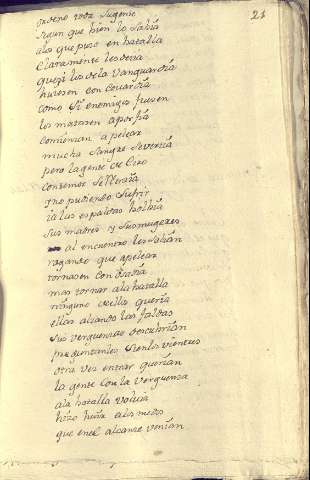 21
ordeno toda Su gente
Segun que bien lo Sabia
alos que puso en batalla
Claramente les decia
que si los dela Vanguardia
huiesen con Couardia
como Si enemigos fuesen
los matasen aporfia
comienzan apelear
mucha Sangre Se vertia
pero la gente de Ciro
con temor Se
no pudiendo Sufrir
ia las espaldas bolbia
Sus madres y Sus mugeres
al encuentro les Salian
rogando que apelear
tornasen con osadia
mas tornar ala batalla
ninguno dellos queria
ellas alzando las faldas
Sus verguenzas descubrian
preguntanles Sien los vientres
otra vez entrar querian
la gente con la verguenza
ala batalla voluia
hizo huir alos medos
que enel alcance venian